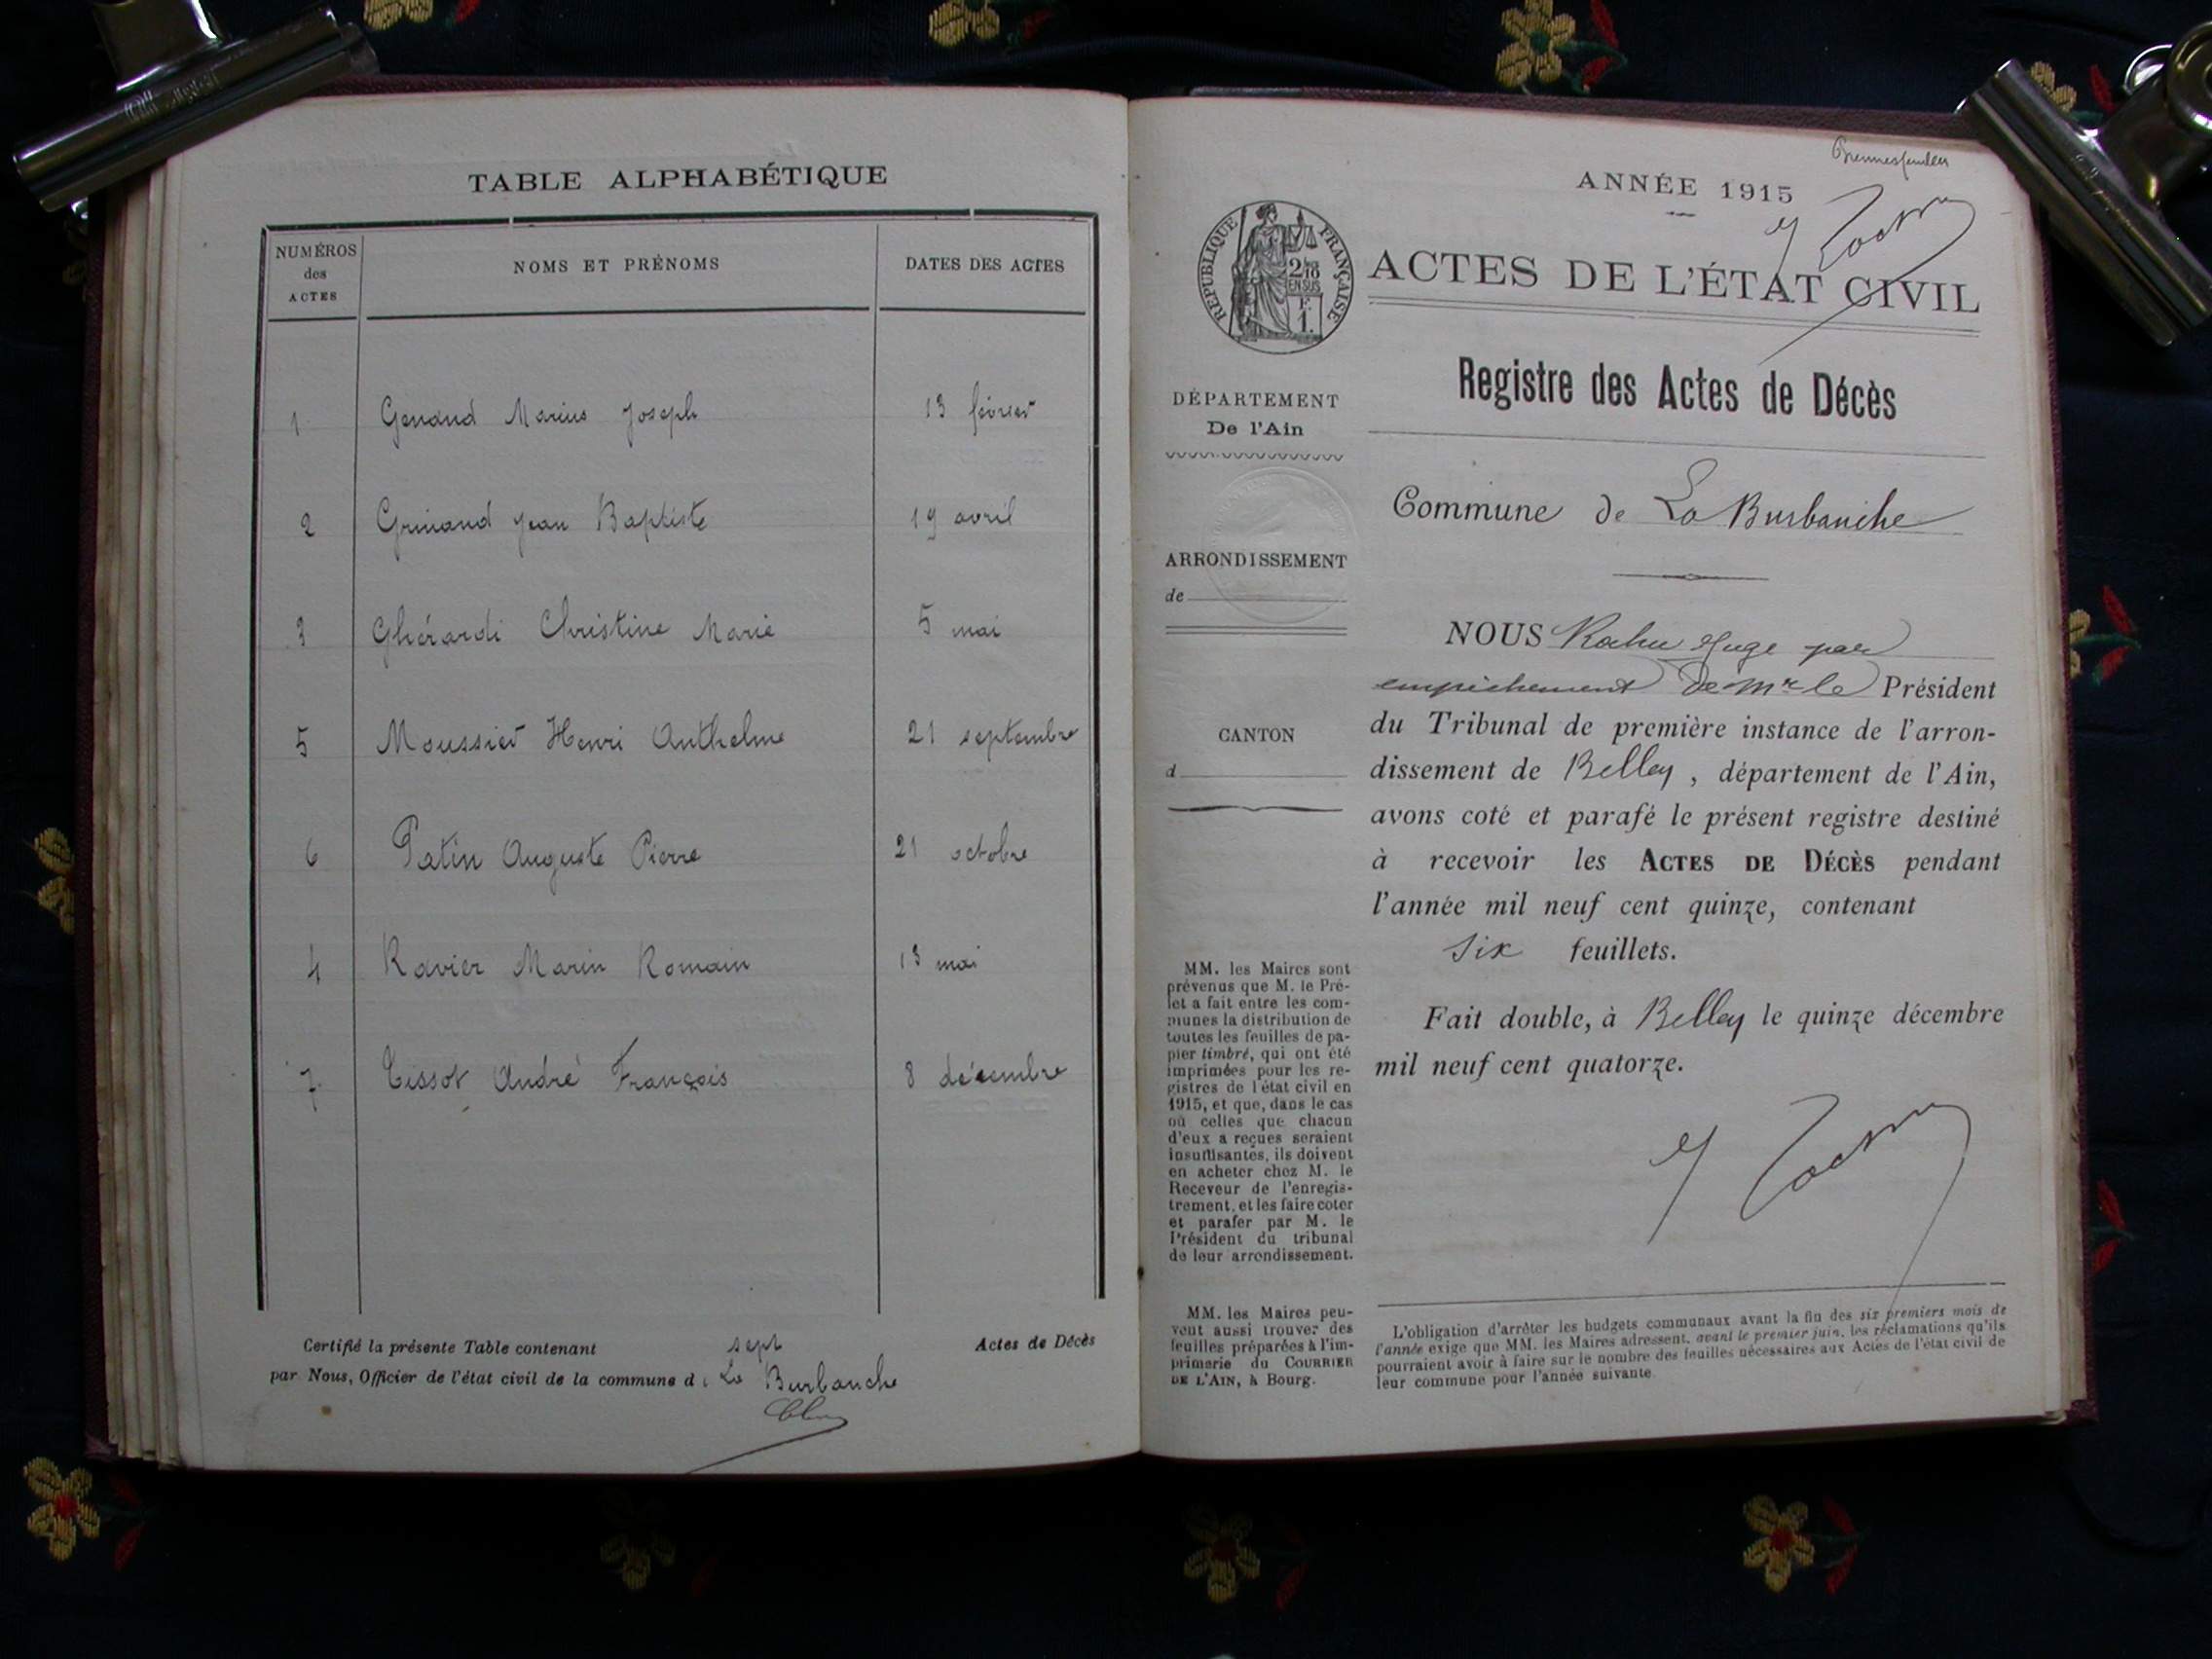 TABLE ALPHABÉTIQUE
NUMÉROS
des
ACTES
NOMS ET PRÉNOMS
DATES DES ACTES
1 Genand Marius Joseph 13 février
2 Grinand Jean Baptiste 19 avril
3 Ghérardi Christine Marie 5 mai
5 Moussier Henri Anthelme 21 septembre
6 Patin Auguste Pierre 21 octobre
4 Ravier Marin Romain 13 mai
7 Tissot André François 8 décembre
Certifié la présente Table contenant sept Actes de Décès
par Nous, Officier de l'état civil de la commune d La Burbanche
ANNÉE 1915
RÉPUBLIQUE FRANÇAISE
2/10
EN SUS
F.
1.
ACTES DE L'ÉTAT CIVIL
Registre des Actes de Décès
DÉPARTEMENT
De l'Ain
Commune de La Burbanche
ARRONDISSEMENT
de
CANTON
d
NOUS Juge par
empêchement de Mr le Président
du Tribunal de première instance de l'arron-
dissement de Belley, département de l'Ain,
avons coté et parafé le présent registre destiné
à recevoir les ACTES DE DÉCÈS pendant
l'année mil neuf cent quinze, contenant
six feuillets.
Fait double, à Belley le quinze décembre
mil neuf cent quatorze.
MM. les Maires sont
prévenus que M. le Pré-
fet a fait entre les com-
munes la distribution de
toutes les feuilles de pa-
pier timbré, qui ont été
imprimées pour les re-
gistres de l'état civil en
1915, et que, dans le cas
où celles que chacun
d'eux a reçues seraient
insuffisantes, ils doivent
en acheter chez M. le
Receveur de l'enregis-
trement, et les faire coter
et parafer par M. le
Président du tribunal
de leur arrondissement.
MM. les Maires peu-
vent aussi trouver des
feuilles préparées à l'im-
primerie du COURRIER
DE L'AIN, à Bourg.
L'obligation d'arrêter les budgets communaux avant la fin des six premiers mois de
l'année exige que MM. les Maires adressent, avant le premier juin, les réclamations qu'ils
pourraient avoir à faire sur le nombre des feuilles nécessaires aux Actes de l'état civil de
leur commune pour l'année suivante